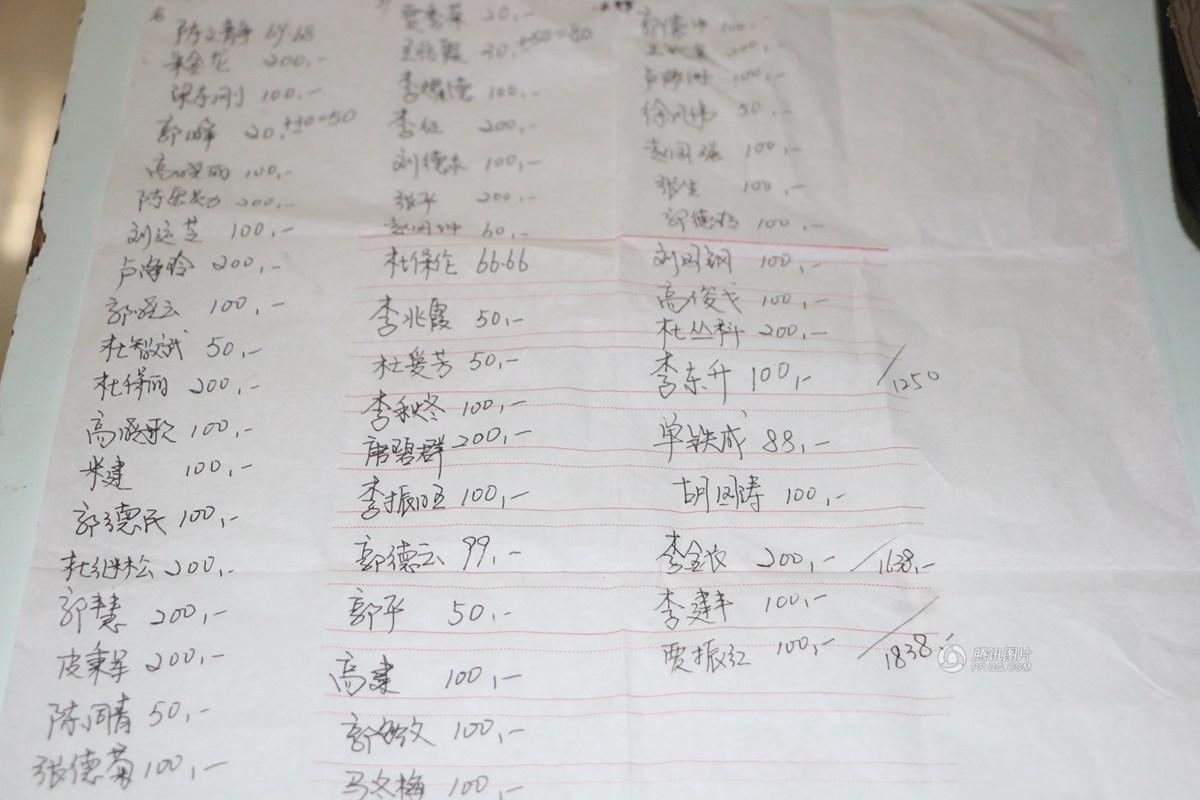 陈文静 69.68
朱金龙 200,-
梁东刚 100,-
郭峰 20,+30=50
高晓丽 100,-
200,-
刘运芝 100,-
卢海玲 200,-
郭晓云 100,-
杜智斌 50,-
杜保丽 200,-
高晓歌 100,-
米建 100,-
郭德民 100,-
杜继松 200,-
郭慧 200,-
皮秉军 200,-
陈同青 50,-
张德菊 100,-
贾秀英 20,-
王兆霞 30,+50=80
李 100,-
李红 200,-
刘德永 100,-
张平 200,-
赵国坤 60,-
杜保伦 66.66
李兆霞 50,-
杜爱芳 50,-
李秋冬 100,-
唐碧群 200,-
李振旺 100,-
郭德云 99,-
郭平 50,-
高建 100,-
郭 文 100,-
马冬梅 100,-
郭德中 100,-
200,-
100,-
徐风伟 50,-
赵国强 100,-
张生 100,-
郭德 100,-
刘国钢 100,-
高俊戈 100,-
杜丛科 200,-
李东升 100,- /1250
单铁成 88,-
胡国涛 100,-
李金 200,- /1638,-
李建丰 100,-
贾振红 100,- /1838,-
腾讯图片
PP.QQ.COM